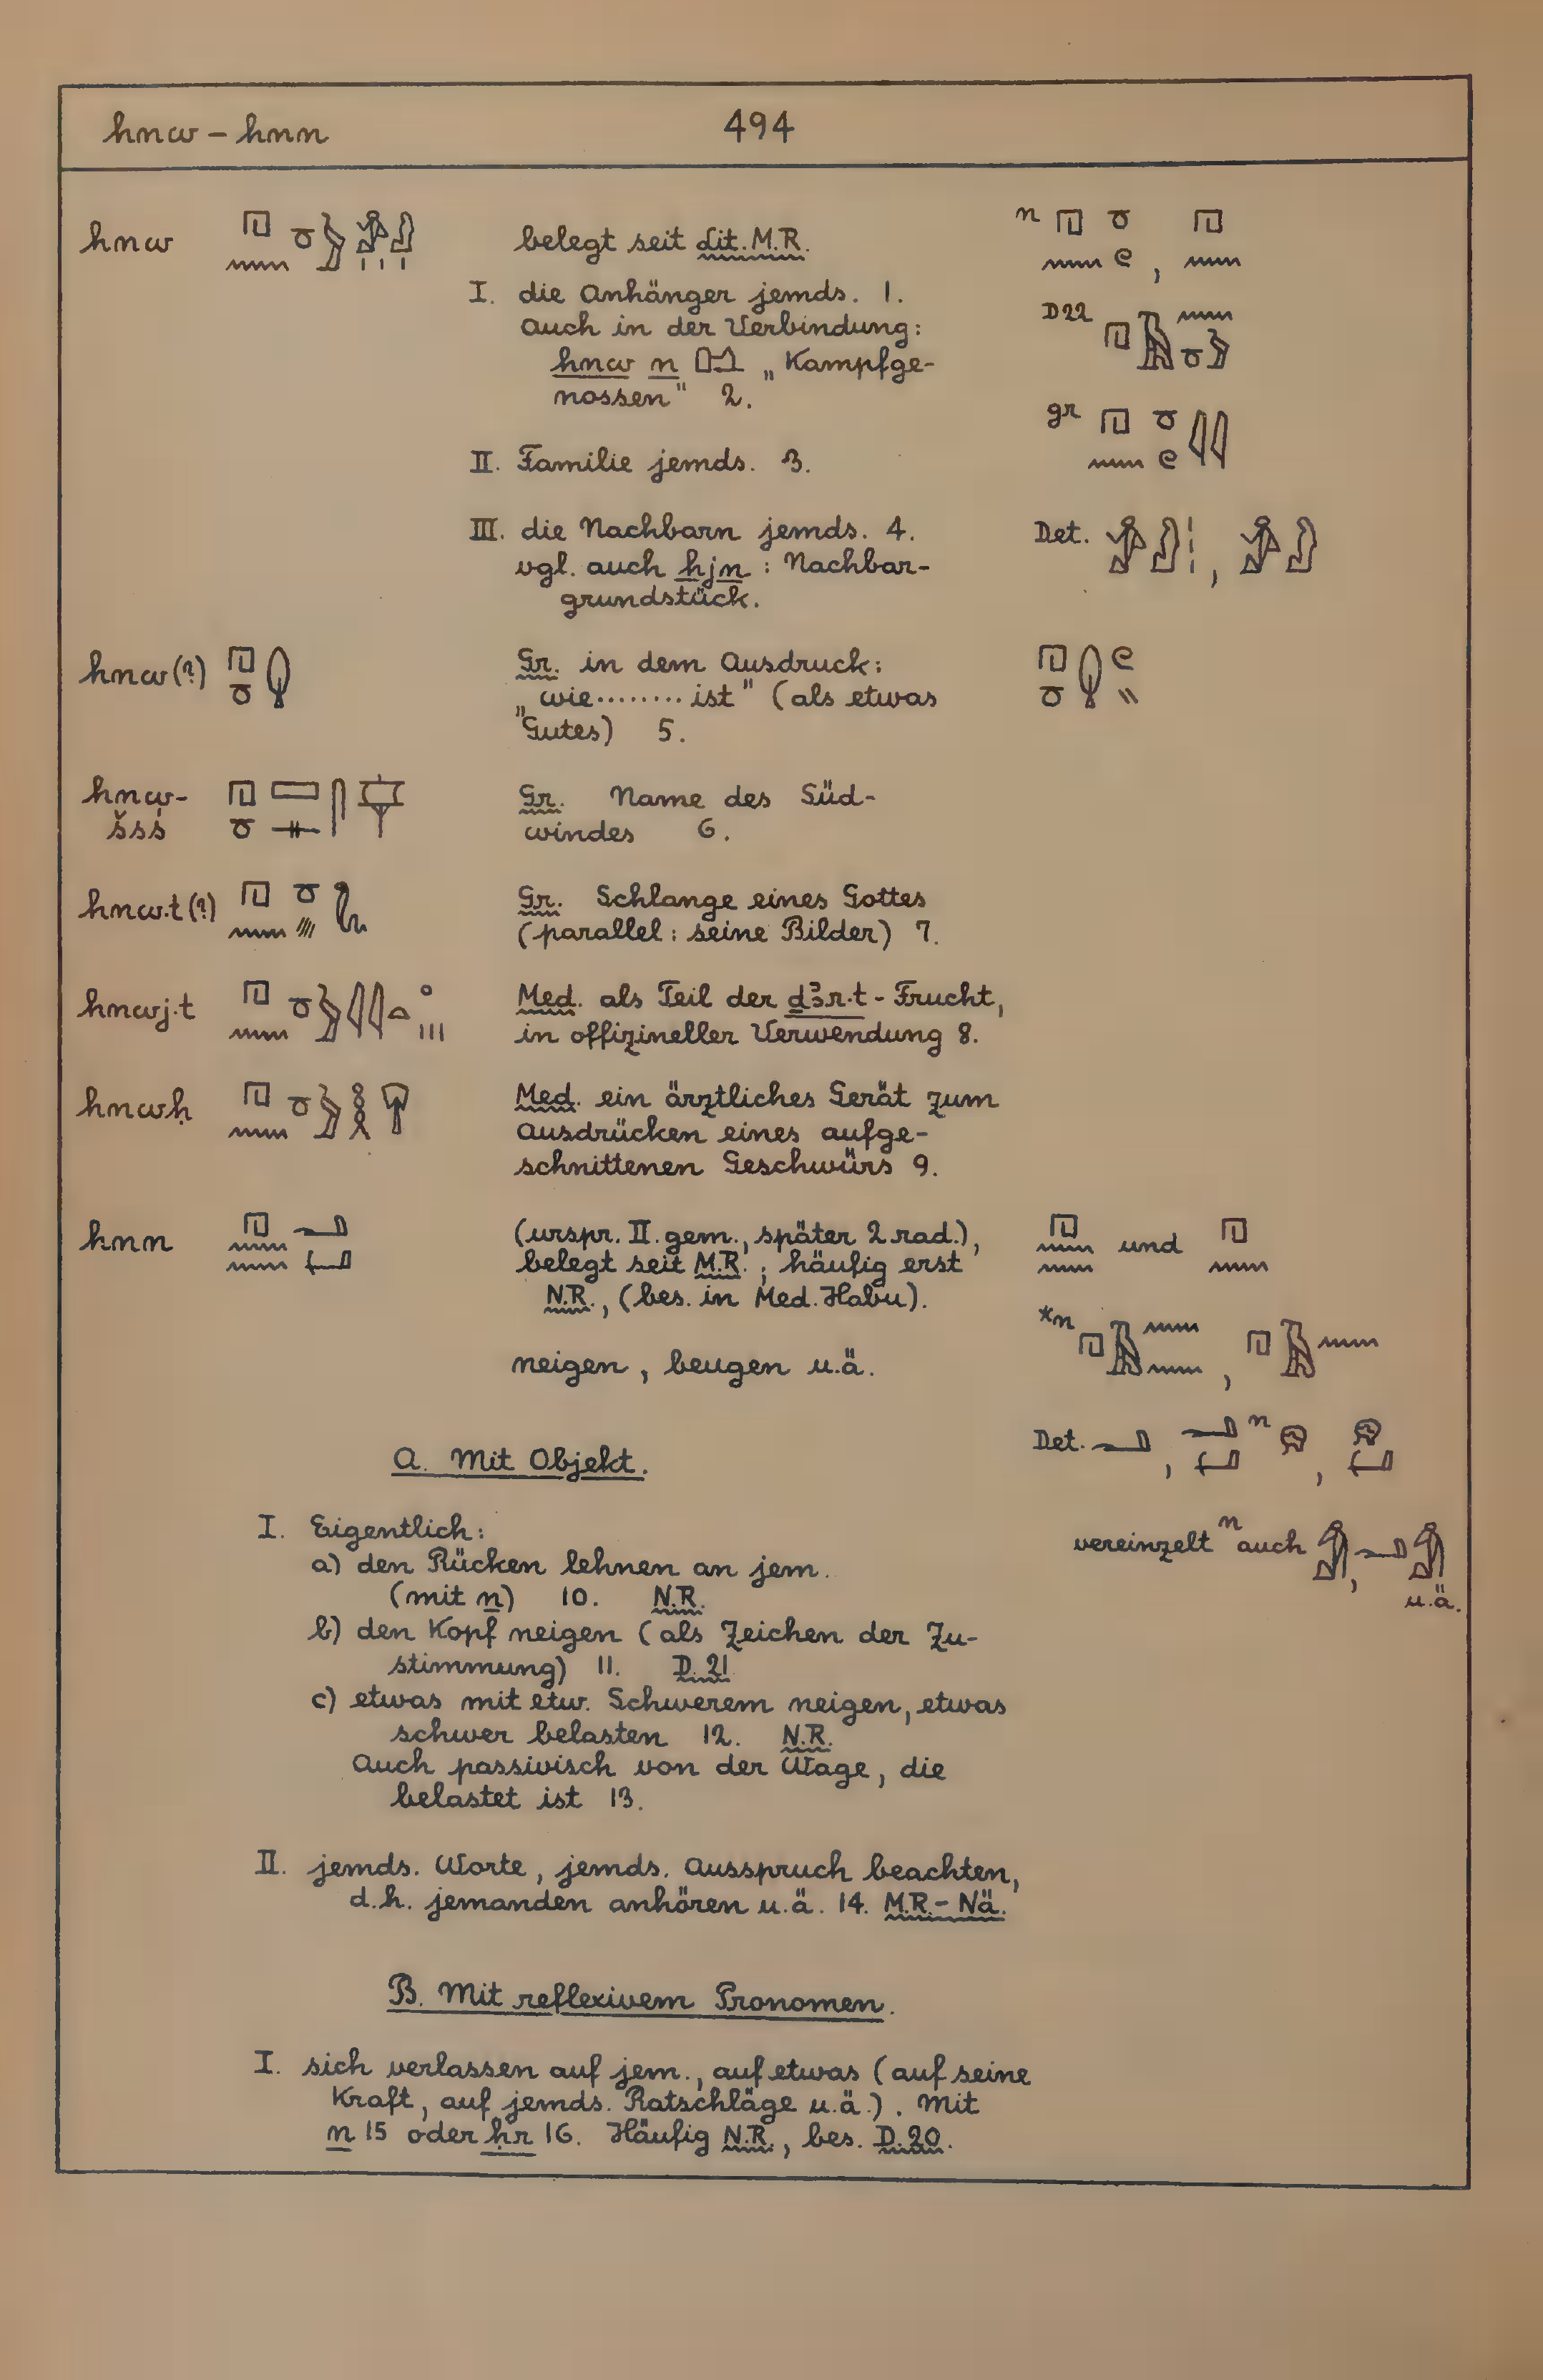 hnw – hnn 494
hnw belegt seit Lit. M.R. n ,
I. die Anhänger jemds. 1.
Auch in der Verbindung: D22
hnw n „Kampfge-
nossen" 2. gr
II. Familie jemds. 3.
III. die Nachbarn jemds. 4. Det. ,
vgl. auch hjn : Nachbar-
grundstück.
hnw(?) Gr. in dem Ausdruck:
„wie........ist" (als etwas
Gutes) 5.
hnw- Gr. Name des Süd-
šsś windes 6.
hnw.t(?) Gr. Schlange eines Gottes
(parallel: seine Bilder) 7.
hnwj.t Med. als Teil der ḏꜣr.t - Frucht,
in offizineller Verwendung 8.
hnwḥ Med. ein ärztliches Gerät zum
Ausdrücken eines aufge-
schnittenen Geschwürs 9.
hnn (urspr. II. gem., später 2 rad.), und
belegt seit M.R.; häufig erst
N.R., (bes. in Med. Habu).
*n ,
neigen, beugen u.ä.
Det. , n ,
A. Mit Objekt.
I. Eigentlich:
vereinzelt n auch , u.ä.
a) den Rücken lehnen an jem.
(mit n) 10. N.R.
b) den Kopf neigen (als Zeichen der Zu-
stimmung) 11. D. 21
c) etwas mit etw. Schwerem neigen, etwas
schwer belasten 12. N.R.
Auch passivisch von der Wage, die
belastet ist 13.
II. jemds. Worte, jemds. Ausspruch beachten,
d.h. jemanden anhören u.ä. 14. M.R.- Nä.
B. Mit reflexivem Pronomen.
I. sich verlassen auf jem., auf etwas (auf seine
Kraft, auf jemds. Ratschläge u.ä.). Mit
n 15 oder ḥr 16. Häufig N.R., bes. D.20.